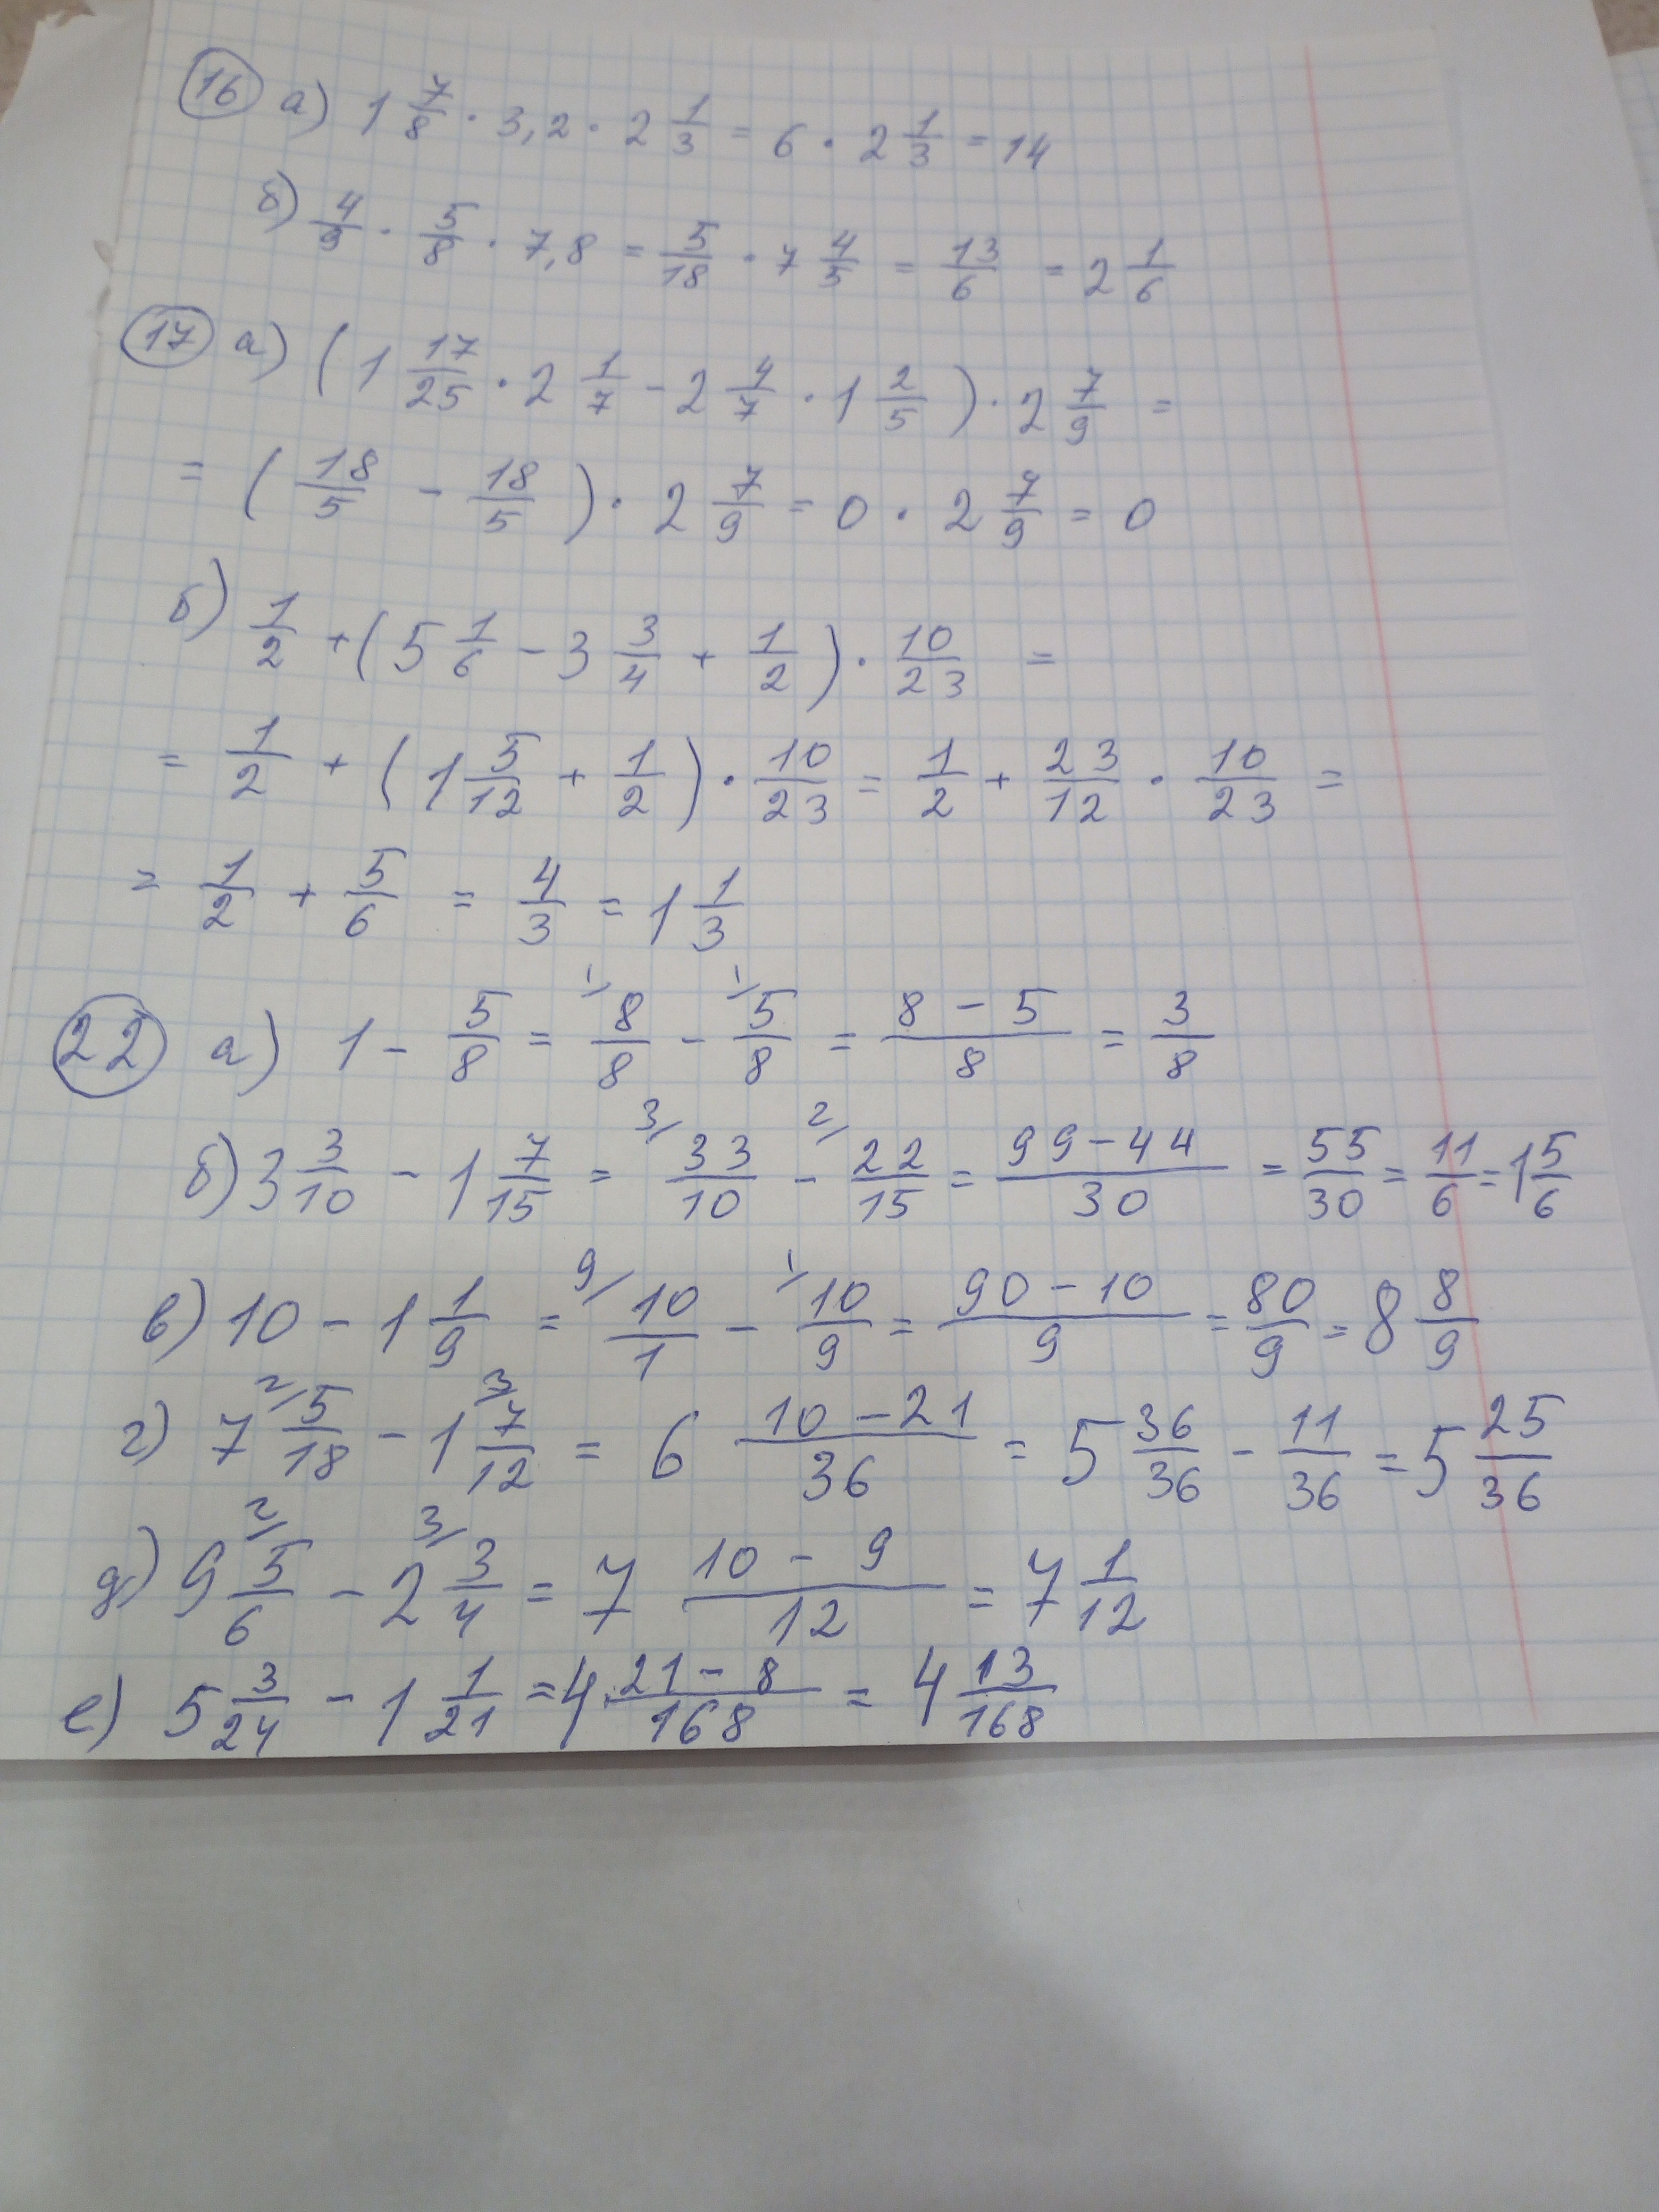 16 а) 1 7/8 · 3,2 · 2 1/3 = 6 · 2 1/3 = 14
б) 4/9 · 5/8 · 7,8 = 5/18 · 7 4/5 = 13/6 = 2 1/6
17 а) (1 17/25 · 2 1/7 - 2 4/7 · 1 2/5) · 2 7/9 =
= (18/5 - 18/5) · 2 7/9 = 0 · 2 7/9 = 0
б) 1/2 + (5 1/6 - 3 3/4 + 1/2) · 10/23 =
= 1/2 + (1 5/12 + 1/2) · 10/23 = 1/2 + 23/12 · 10/23 =
= 1/2 + 5/6 = 4/3 = 1 1/3
22 а) 1 - 5/8 = 1/ 8/8 - 1/ 5/8 = (8 - 5)/8 = 3/8
б) 3 3/10 - 1 7/15 = 3/ 33/10 - 2/ 22/15 = (99 - 44)/30 = 55/30 = 11/6 = 1 5/6
в) 10 - 1 1/9 = 9/ 10/1 - 1/ 10/9 = (90 - 10)/9 = 80/9 = 8 8/9
г) 7 2/ 5/18 - 1 3/ 7/12 = 6 (10 - 21)/36 = 5 36/36 - 11/36 = 5 25/36
д) 9 2/ 5/6 - 2 3/ 3/4 = 7 (10 - 9)/12 = 7 1/12
е) 5 3/24 - 1 1/21 = 4 (21 - 8)/168 = 4 13/168